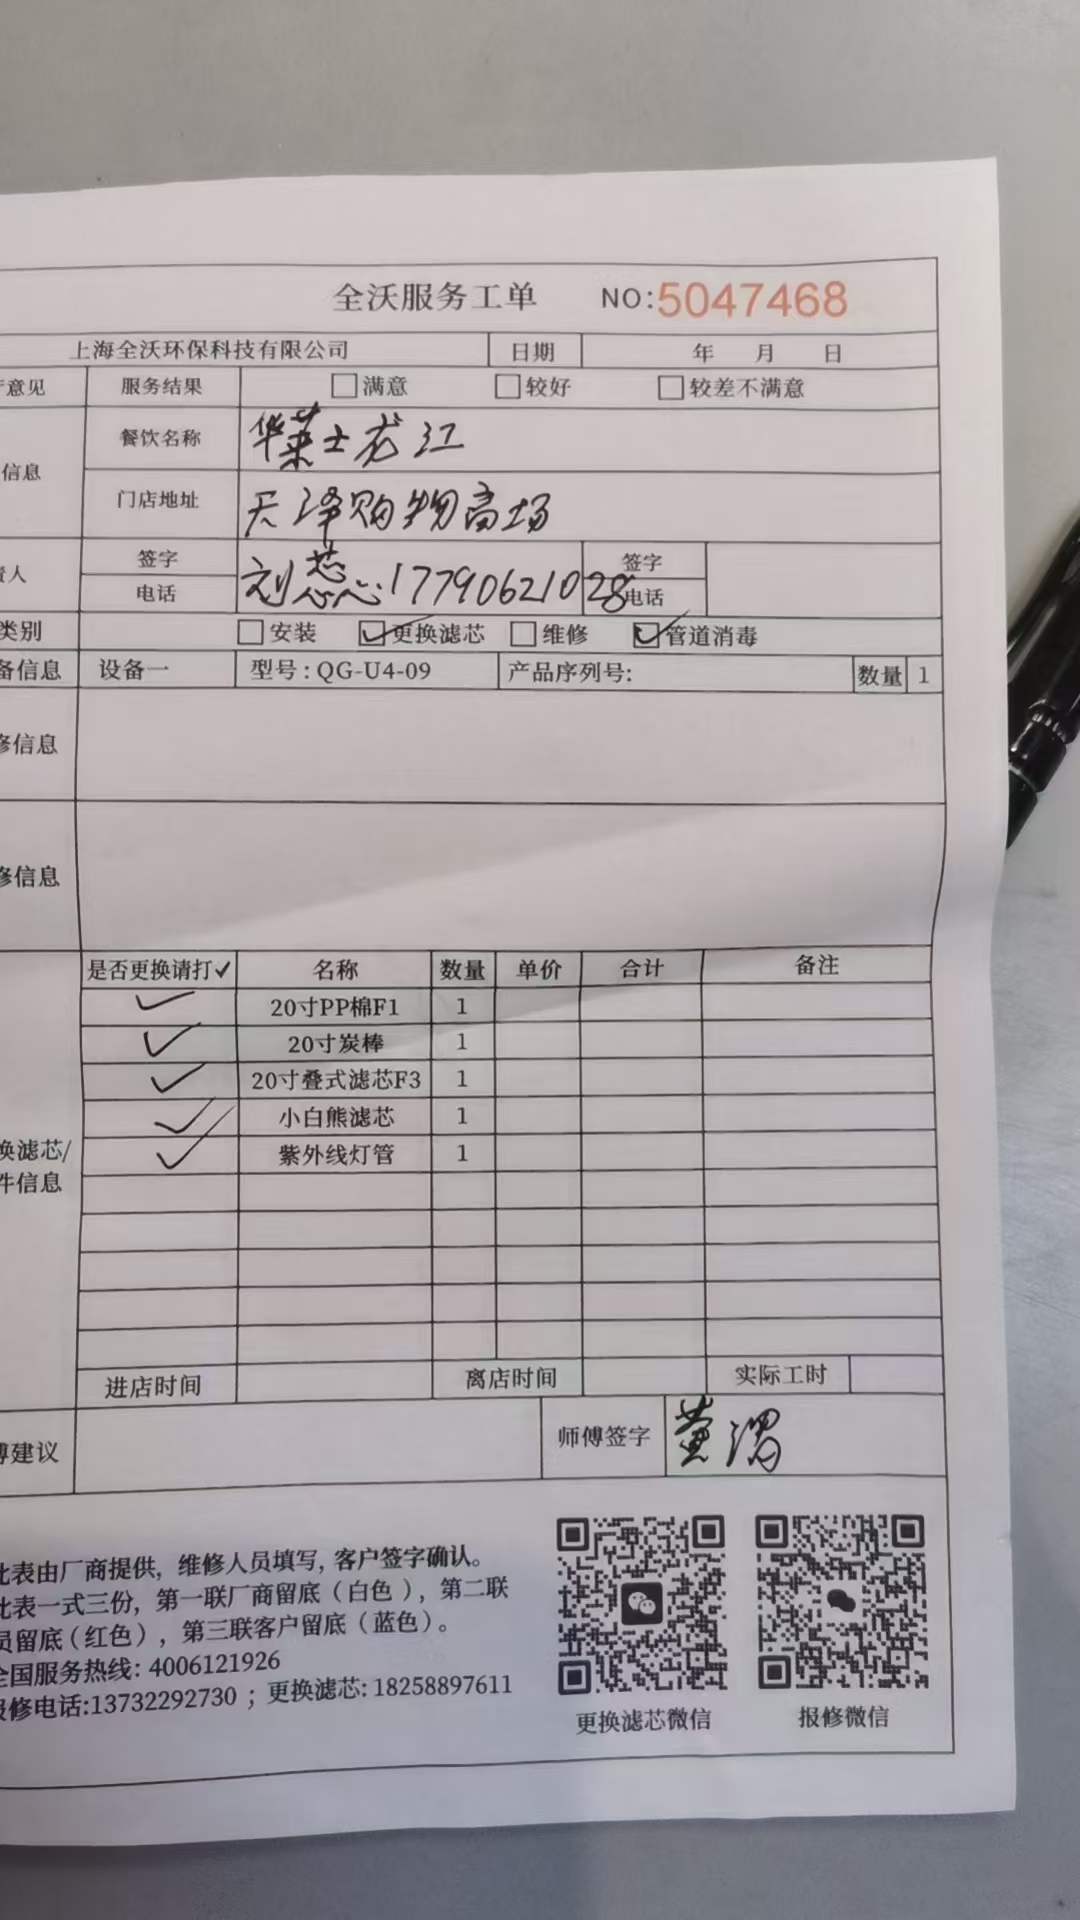 全沃服务工单 NO:5047468
上海全沃环保科技有限公司 日期 年 月 日
意见 服务结果 满意 较好 较差不满意
信息 餐饮名称 华莱士龙江
门店地址 天泽购物商场
责人 签字 刘蕊心 签字
电话 17790621028 电话
类别 安装 ✓更换滤芯 维修 ✓管道消毒
备信息 设备一 型号:QG-U4-09 产品序列号: 数量 1
修信息
修信息
是否更换请打✓ 名称 数量 单价 合计 备注
✓ 20寸PP棉F1 1
✓ 20寸炭棒 1
✓ 20寸叠式滤芯F3 1
✓ 小白熊滤芯 1
✓ 紫外线灯管 1
换滤芯/
件信息
进店时间 离店时间 实际工时
傅建议 师傅签字 黄
此表由厂商提供，维修人员填写，客户签字确认。
此表一式三份，第一联厂商留底（白色），第二联
员留底（红色），第三联客户留底（蓝色）。
全国服务热线: 4006121926
报修电话:13732292730 ；更换滤芯: 18258897611
更换滤芯微信 报修微信